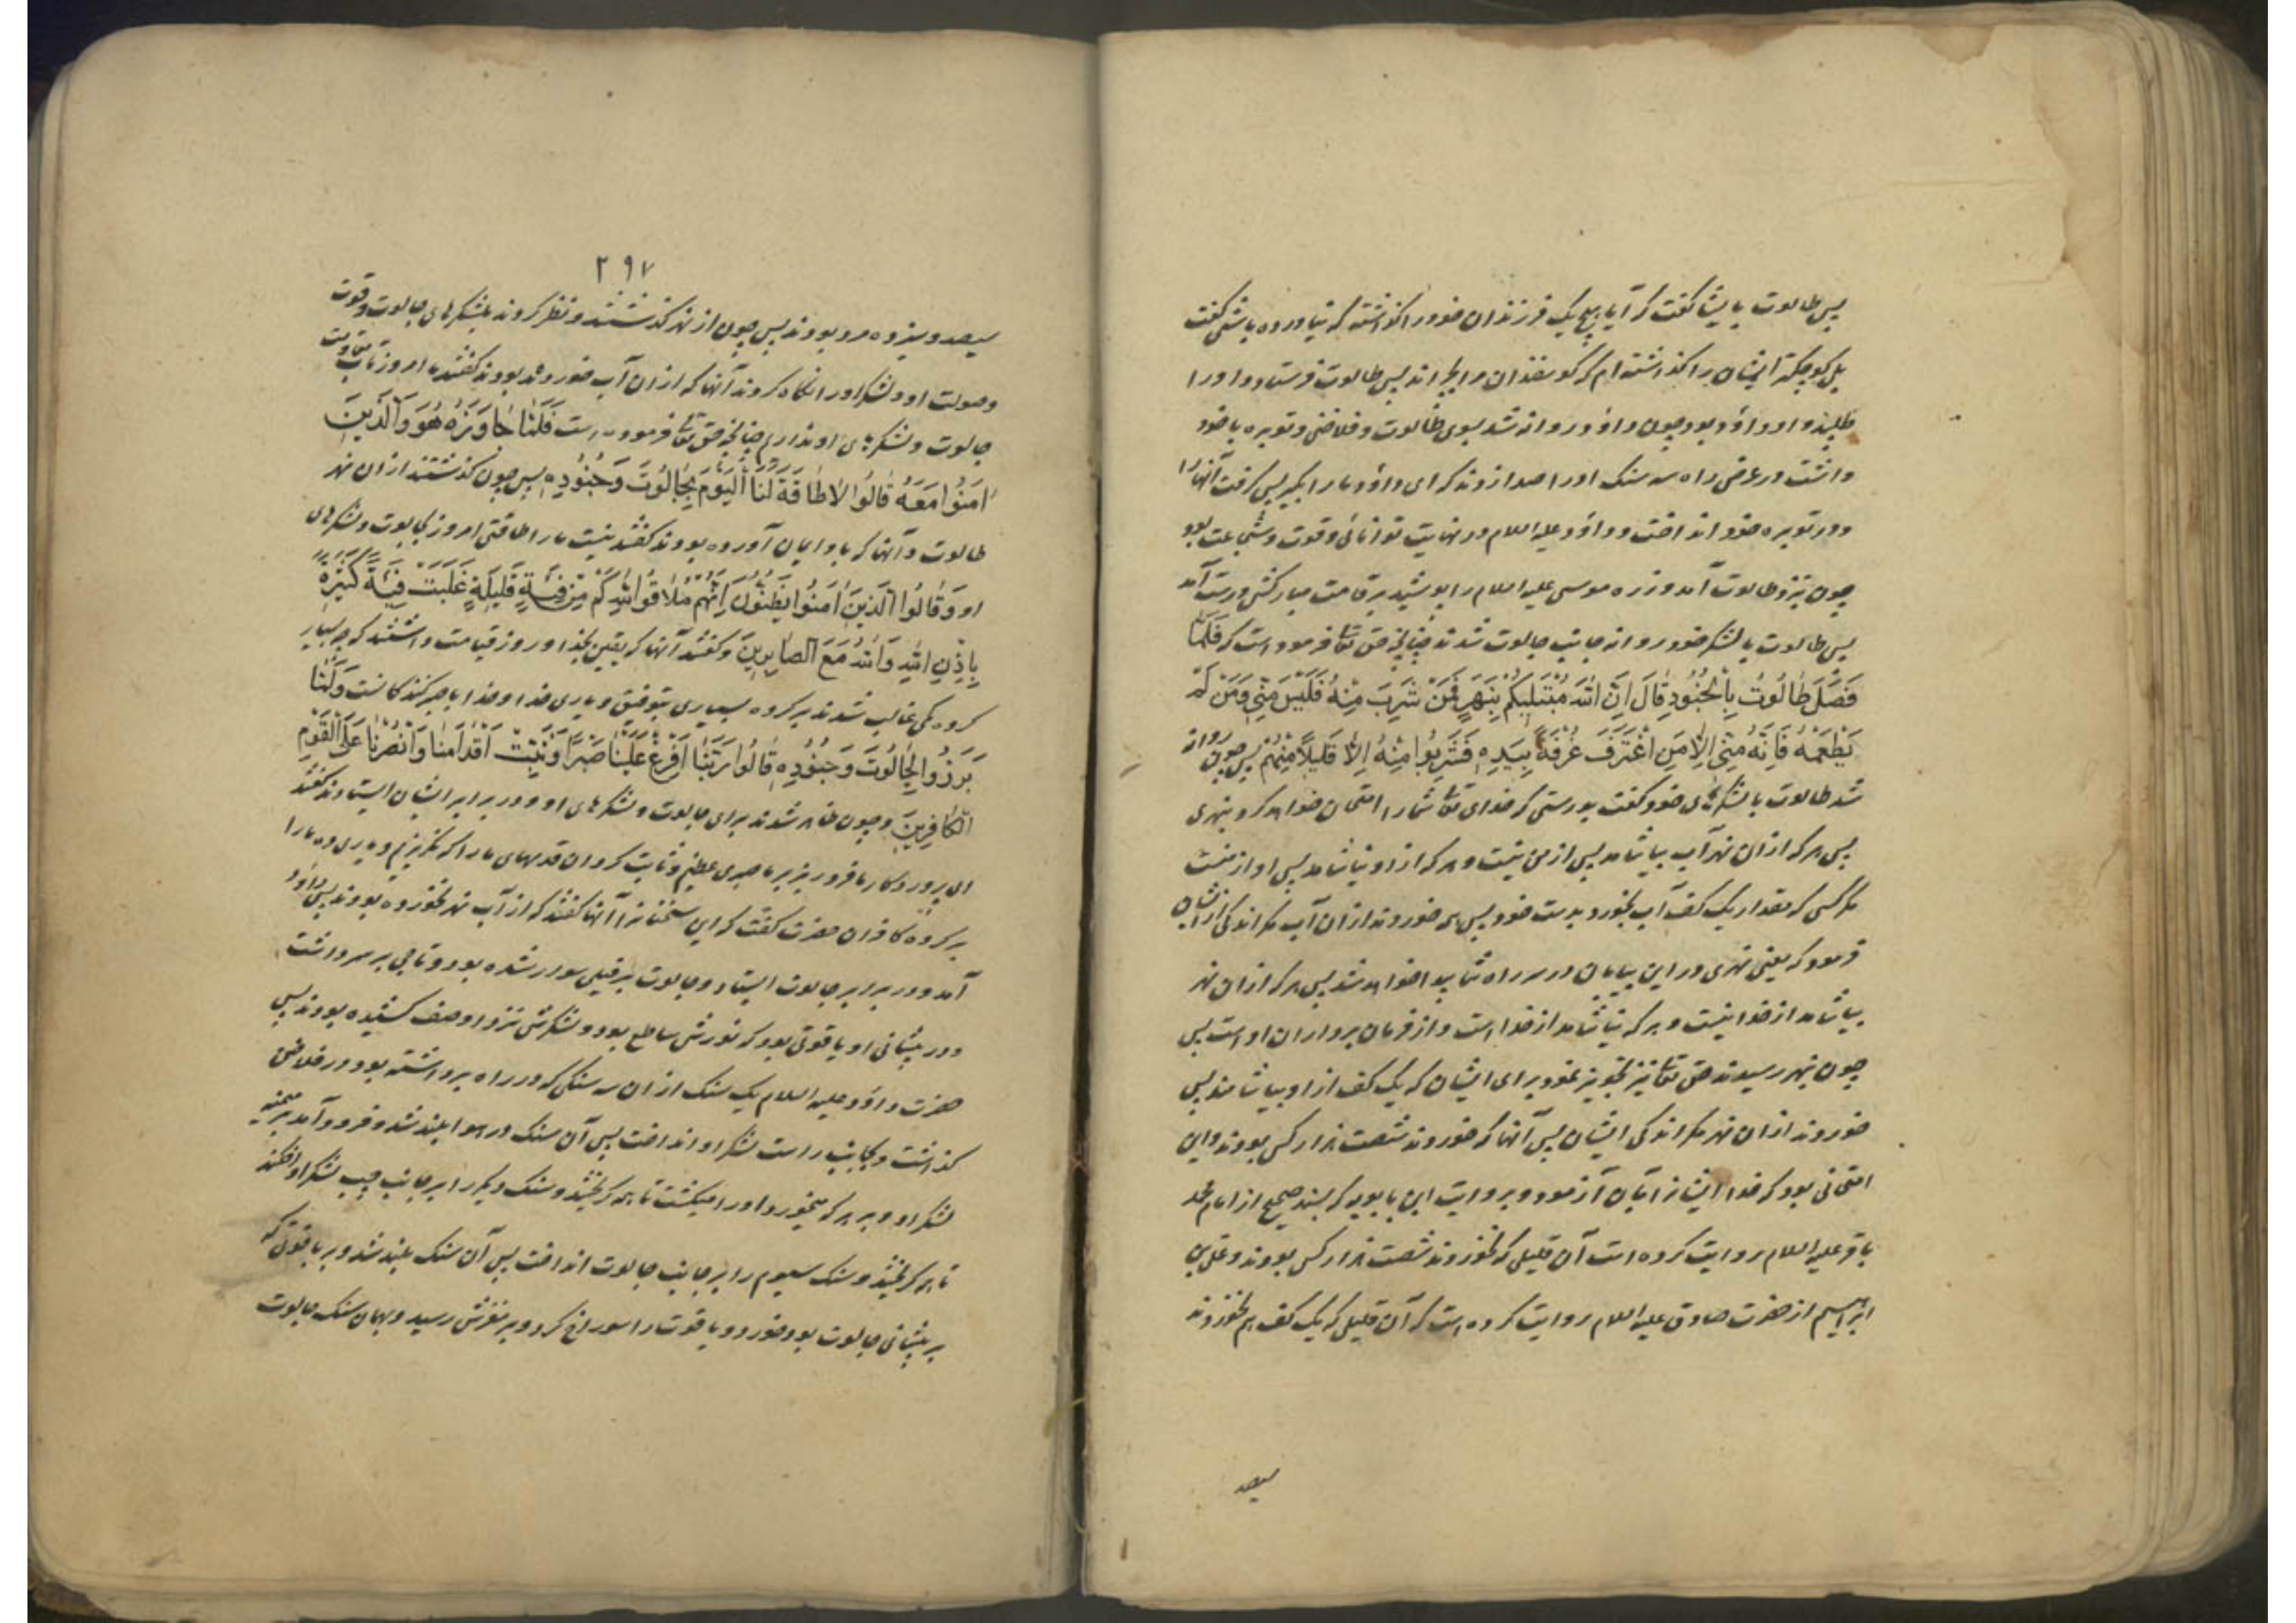 پس طالوت بایشا گفت که آیا هیچ یک فرزندان خود را گذاشته که نیاورده باشی گفت
بلی کوچکتر ایشان را گذاشته ام که گوسفندان مرا بچراند پس طالوت فرستاد و او را
طلبید و او داؤد بود چون داؤد روانه شد بسوی طالوت و فلاخنی و توبره با خود
داشت در عرض راه سه سنک او را صدا زدند که ای داؤد ما را بکیر پس گرفت آنها را
و در توبره خود انداخت و داؤد علیه السلام در نهایت توانائی و قوت و شجاعت بود
چون نزد طالوت آمد و زره موسی علیه السلام را پوشید بر قامت مبارکش درست آمد
پس طالوت با لشکر خود روانه جانب جالوت شدند چنانچه حق تعا فرموده است که فَلَمَّا
فَصَلَ طَالُوتُ بِالْجُنُودِ قَالَ اِنَّ اللّٰهَ مُبْتَلِیکُمْ بِنَهَرٍ فَمَنْ شَرِبَ مِنْهُ فَلَیْسَ مِنّی وَمَنْ لَمْ
یَطْعَمْهُ فَاِنَّهُ مِنّی اِلَّا مَنِ اغْتَرَفَ غُرْفَةً بِیَدِهِ فَشَرِبُوا مِنْهُ اِلَّا قَلِیلًا مِنْهُمْ پس چون روانه
شد طالوت با لشکرهای خود گفت بدرستی که خدای تعا شما را امتحان خواهد کرد بنهری
پس هر که ازان نهر آب بیاشامد پس از من نیست و هر که از او نیاشامد پس او از منست
مکر کسی که مقدار یک کف آب بخورد بدست خود پس همه خوردند ازان آب مکر اندکی از ایشان
فرمود که یعنی نهری در این بیابان در سر راه شما پیدا خواهد شد پس هر که ازان نهر
بیاشامد از خدا نیست و هر که نیاشامد از خدا است و از فرمان برداران او است پس
چون بنهر رسیدند حق تعا نیز تجویز نمود برای ایشان که یک کف از او بیاشامند پس
خوردند ازان نهر مکر اندکی ایشان پس آنها که خوردند شصت هزار کس بودند و این
امتحانی بود که خدا ایشانرا بآن آزمود و بروایت ابن بابویه که بسند صحیح از امام محمد
باقر علیه السلام روایت کرده است آن قلیلی که نخوردند شصت هزار کس بودند و علی بن
ابراهیم از حضرت صادق علیه السلام روایت کرده است که آن قلیلی که یک کف هم نخوردند
سیصد
۲۹۷
سیصد و سیزده مرد بودند پس چون از نهر گذشتند و نظر کردند بلشکرهای جالوت و قوت
و صولت او و لشکر او را نگاه کردند آنها که ازان آب خورده بودند گفتند ما امروز تاب مقاومت
جالوت و لشکرهای او نداریم چنانچه حق تعا فرموده است فَلَمَّا جَاوَزَهُ هُوَ وَالَّذِینَ
اٰمَنُوا مَعَهُ قَالُوا لَا طَاقَةَ لَنَا الْیَوْمَ بِجَالُوتَ وَجُنُودِهِ پس چون گذشتند ازان نهر
طالوت و آنها که باو ایمان آورده بودند گفتند نیست ما را طاقتی امروز بجالوت و لشکرهای
او وَقَالُوا الَّذِینَ اٰمَنُوا یَظُنُّونَ اِنَّهُمْ مُلَاقُوا اللّٰهِ کَمْ مِنْ فِئَةٍ قَلِیلَةٍ غَلَبَتْ فِئَةً کَثِیرَةً
بِاِذْنِ اللّٰهِ وَاللّٰهُ مَعَ الصَّابِرِینَ و گفتند آنها که یقین بخدا و روز قیامت داشتند که چه بسیار
گروه کمی غالب شدند بر گروه بسیاری بتوفیق و یاری خدا و خدا با صبر کنندکانست وَلَمَّا
بَرَزُوا لِجَالُوتَ وَجُنُودِهِ قَالُوا رَبَّنَا اَفْرِغْ عَلَیْنَا صَبْرًا وَثَبِّتْ اَقْدَامَنَا وَانْصُرْنَا عَلَی الْقَوْمِ
الْکَافِرِینَ و چون ظاهر شدند برای جالوت و لشکرهای او و در برابر ایشان ایستادند گفتند
ای پروردکار ما فرو ریز بر ما صبری عظیم و ثابت گردان قدمهای ما را که نگریزیم و یاری ده ما را
بر گروه کافران حضرت گفت که این سخنانرا آنها گفتند که از آب نهر نخورده بودند پس داؤد
آمد و در برابر جالوت ایستاد و جالوت بر فیلی سوار شده بود و تاجی بر سر داشت
و در پیشانی او یاقوتی بود که نورش ساطع بود و لشکرش نزد او صف کشیده بودند پس
حضرت داؤد علیه السلام یک سنک ازان سه سنکی که در راه برداشته بود در فلاخن
گذاشت و بجانب راست لشکر او انداخت پس آن سنک در هوا بلند شد و فرود آمد بر میمنه
لشکر او و بر هر که میخورد او را میکشت تا همه گریختند و سنک دیکر را بر جانب چپ لشکر او افکند
تا همه گریختند و سنک سیوم را بر جانب جالوت انداخت پس آن سنک بلند شد و بر یاقوتی که
بر پیشانی جالوت بود خورد و یاقوت را سوراخ کرد و بر مغزش رسید و بهمان سنک جالوت